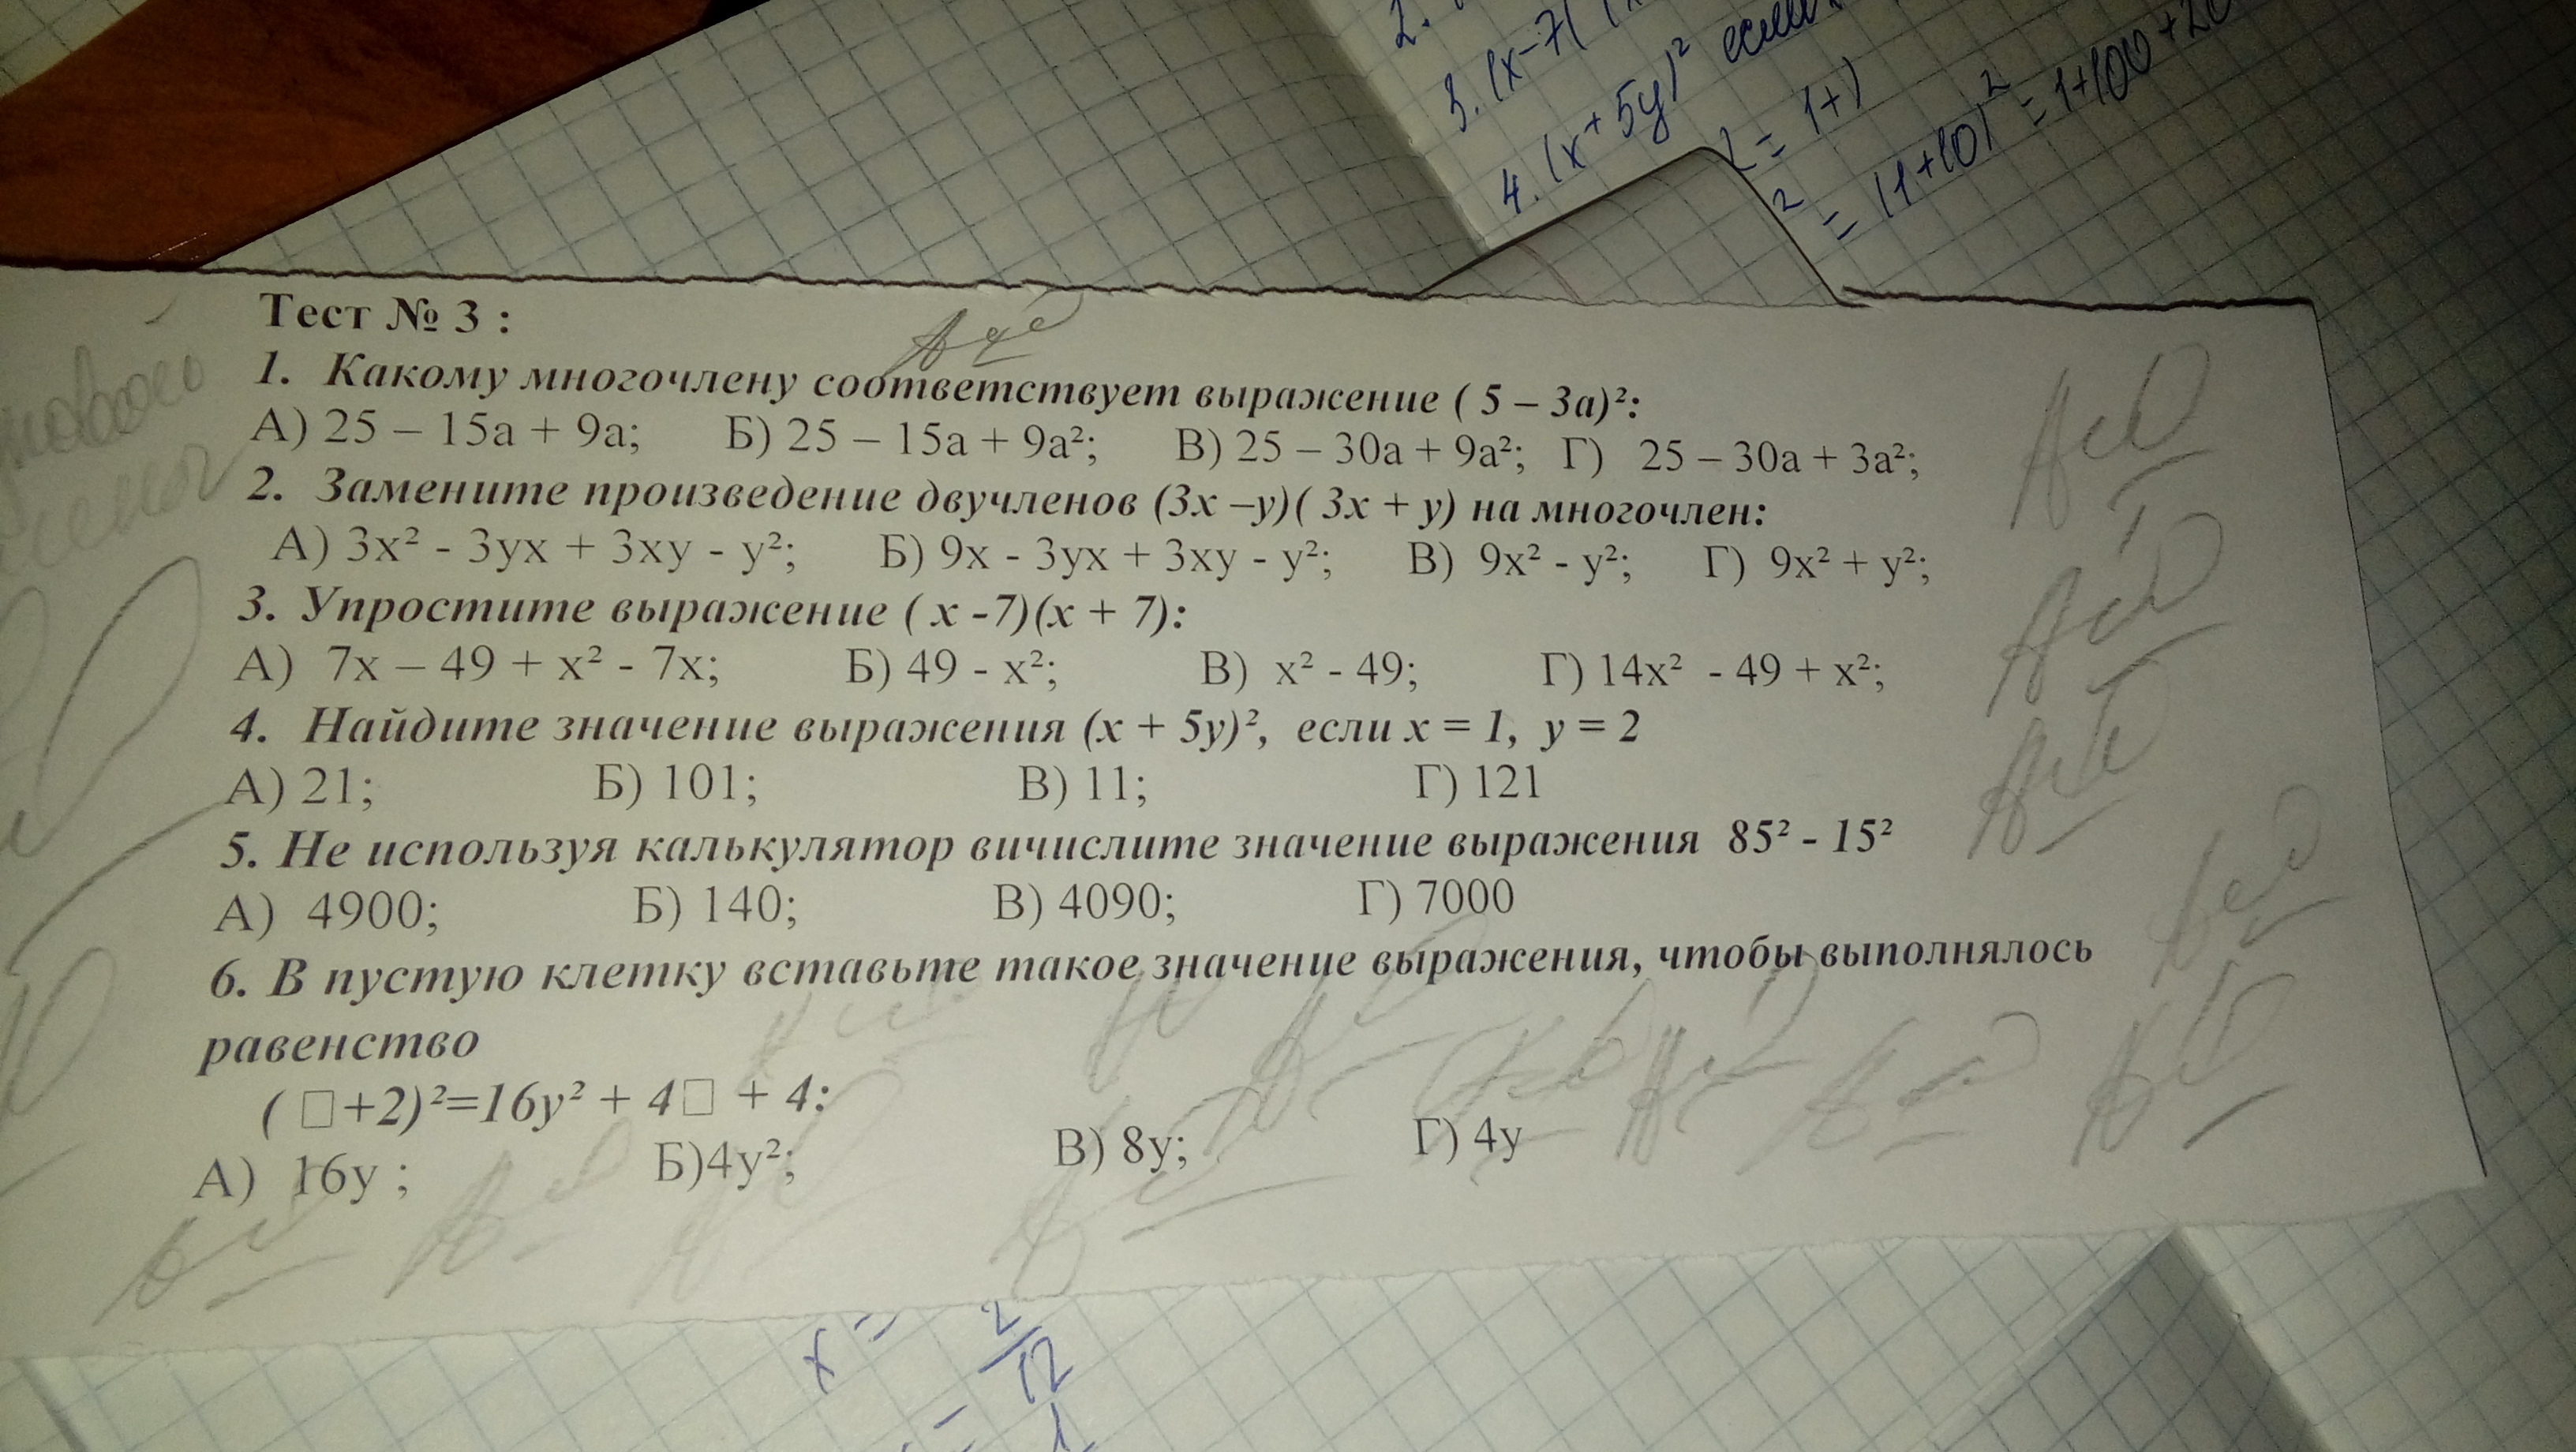 2.
3. (x-7)
4. (x+5y)² если
= (1+10)² = 1+100+20
Тест № 3 :
1. Какому многочлену соответствует выражение ( 5 – 3а)²:
А) 25 – 15а + 9а; Б) 25 – 15а + 9а²; В) 25 – 30а + 9а²; Г) 25 – 30а + 3а²;
2. Замените произведение двучленов (3х –у)( 3х + у) на многочлен:
А) 3х² - 3ух + 3ху - у²; Б) 9х - 3ух + 3ху - у²; В) 9х² - у²; Г) 9х² + у²;
3. Упростите выражение ( х -7)(х + 7):
А) 7х – 49 + х² - 7х; Б) 49 - х²; В) х² - 49; Г) 14х² - 49 + х²;
4. Найдите значение выражения (х + 5у)², если х = 1, у = 2
А) 21; Б) 101; В) 11; Г) 121
5. Не используя калькулятор вичислите значение выражения 85² - 15²
А) 4900; Б) 140; В) 4090; Г) 7000
6. В пустую клетку вставьте такое значение выражения, чтобы выполнялось
равенство
( □+2)²=16у² + 4□ + 4:
А) 16у ; Б)4у²; В) 8у; Г) 4у
x = 2/12